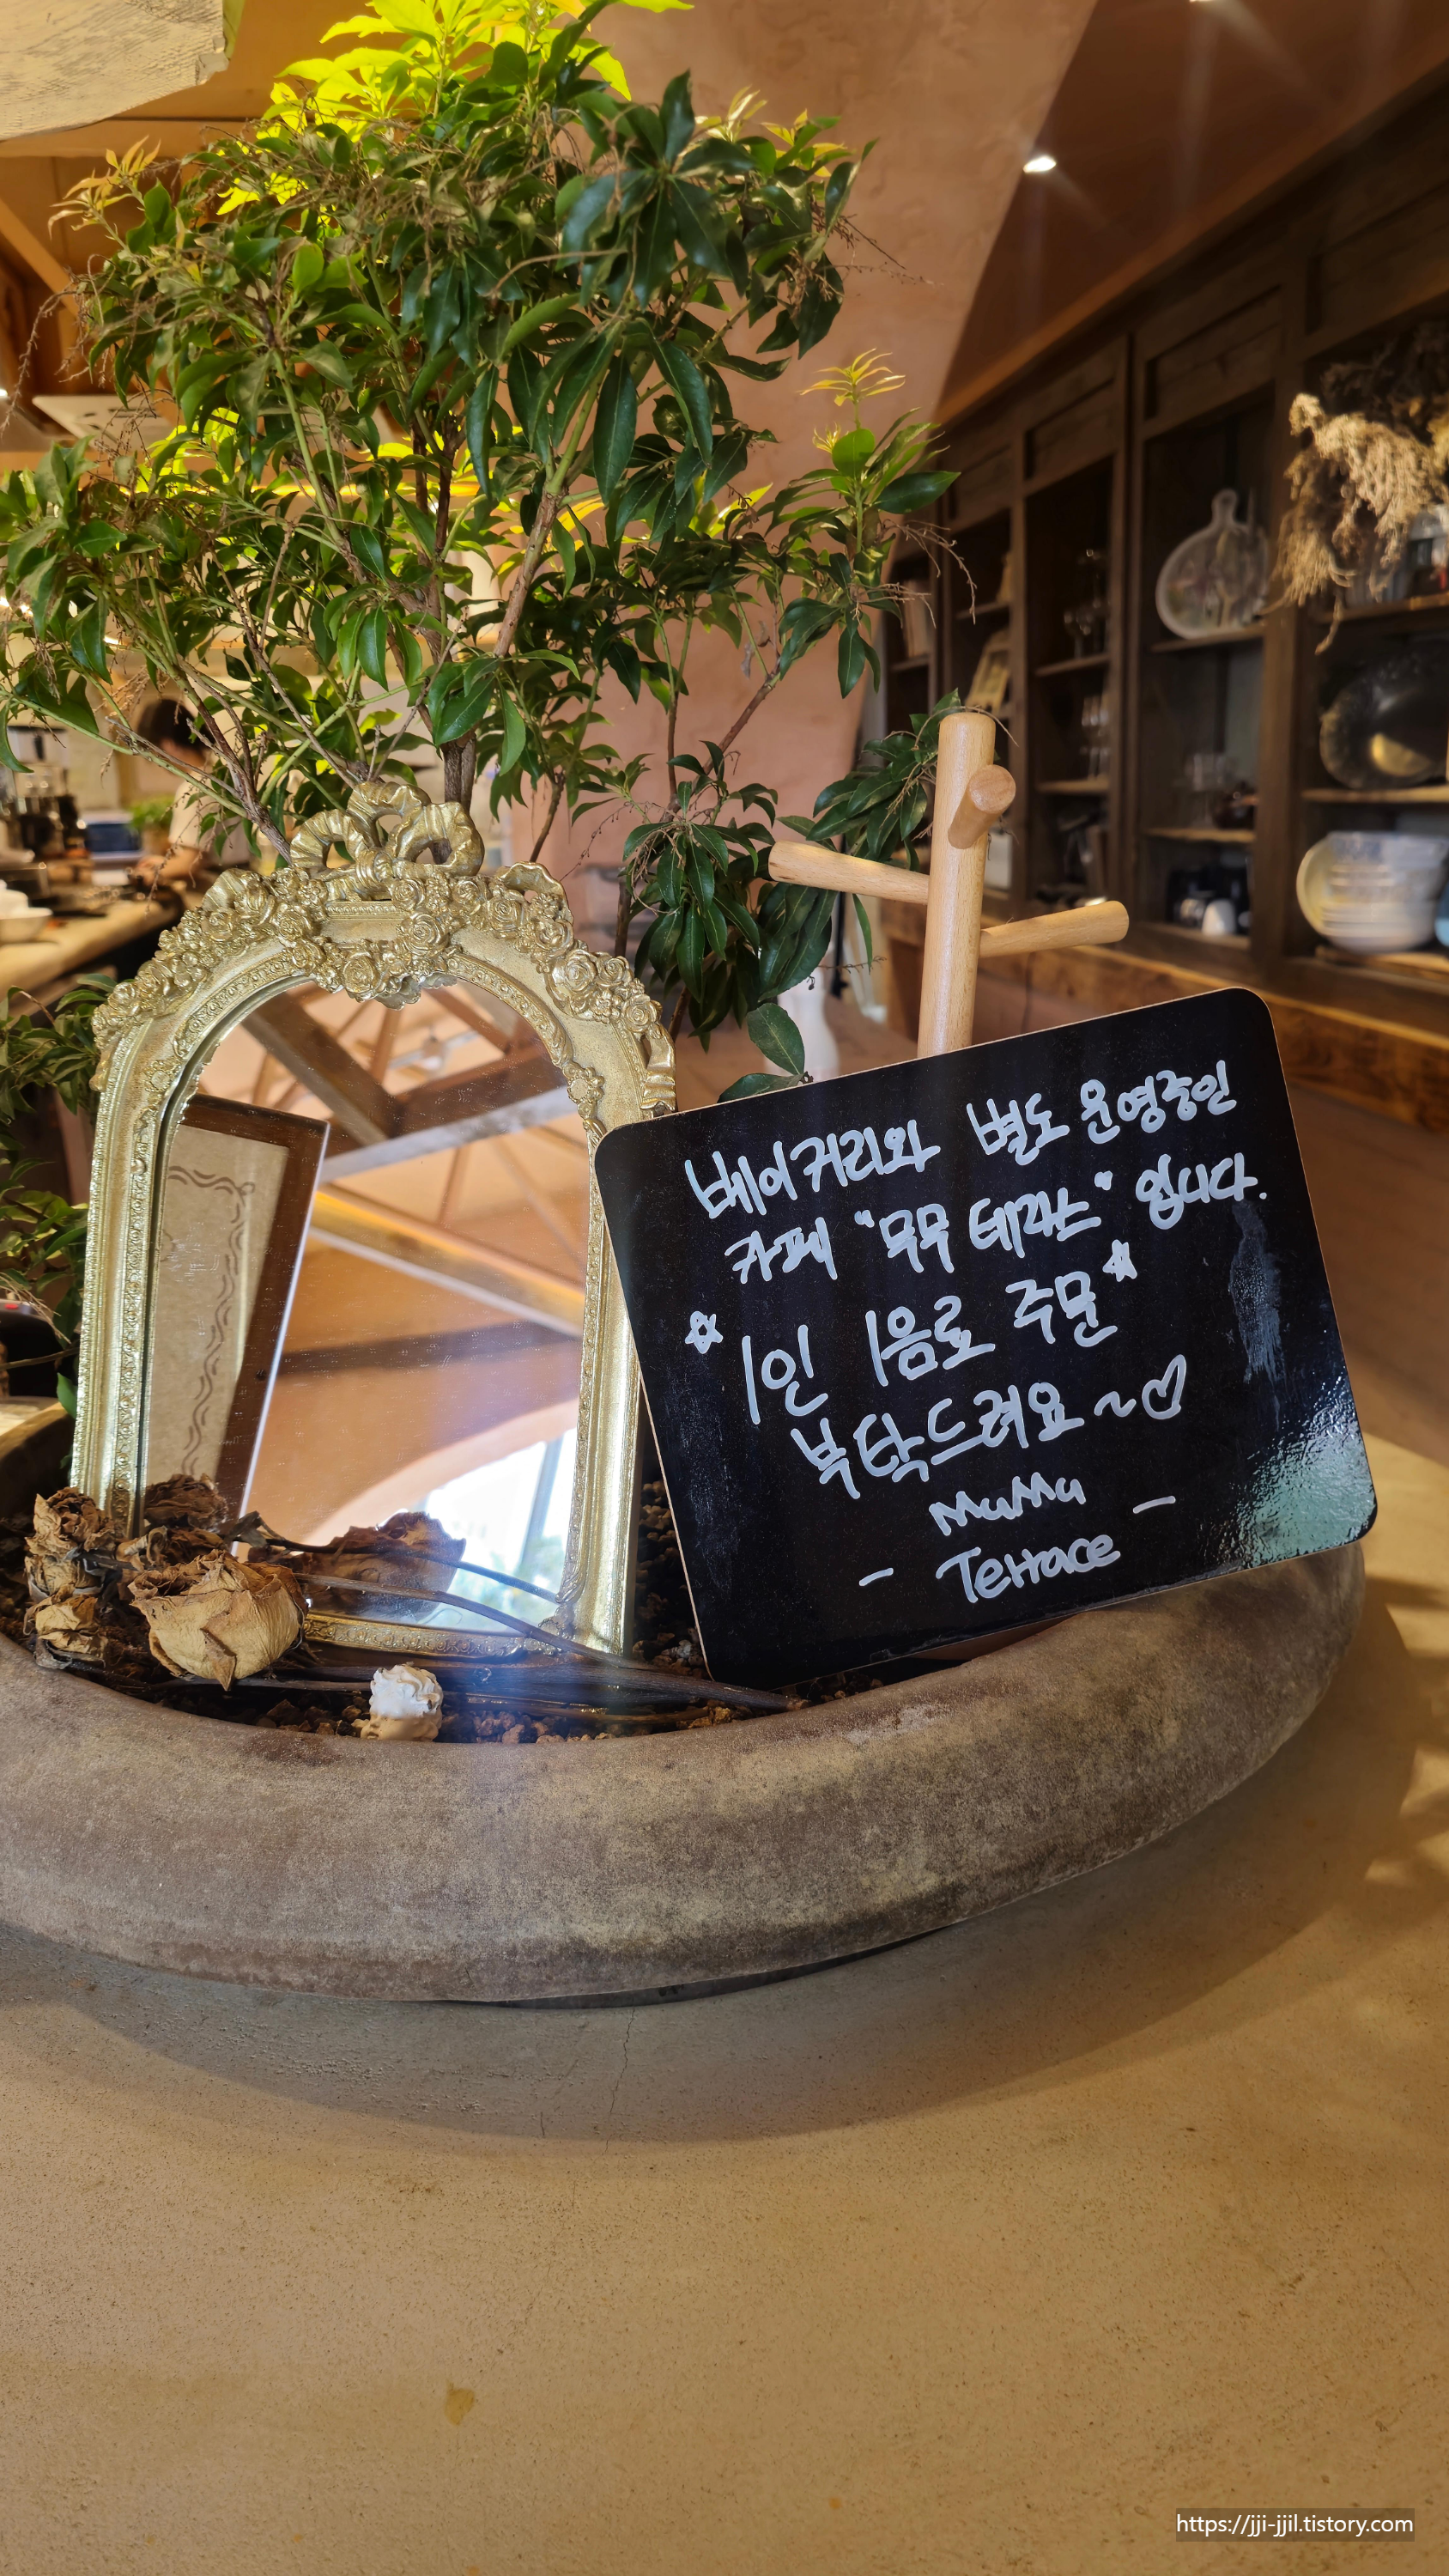 베이커리와 별도 운영중인
카페 "무무 테라스" 입니다.
☆1인 1음료 주문☆
부탁드려요~♡
MuMu
- Terrace -
https://jji-jjil.tistory.com